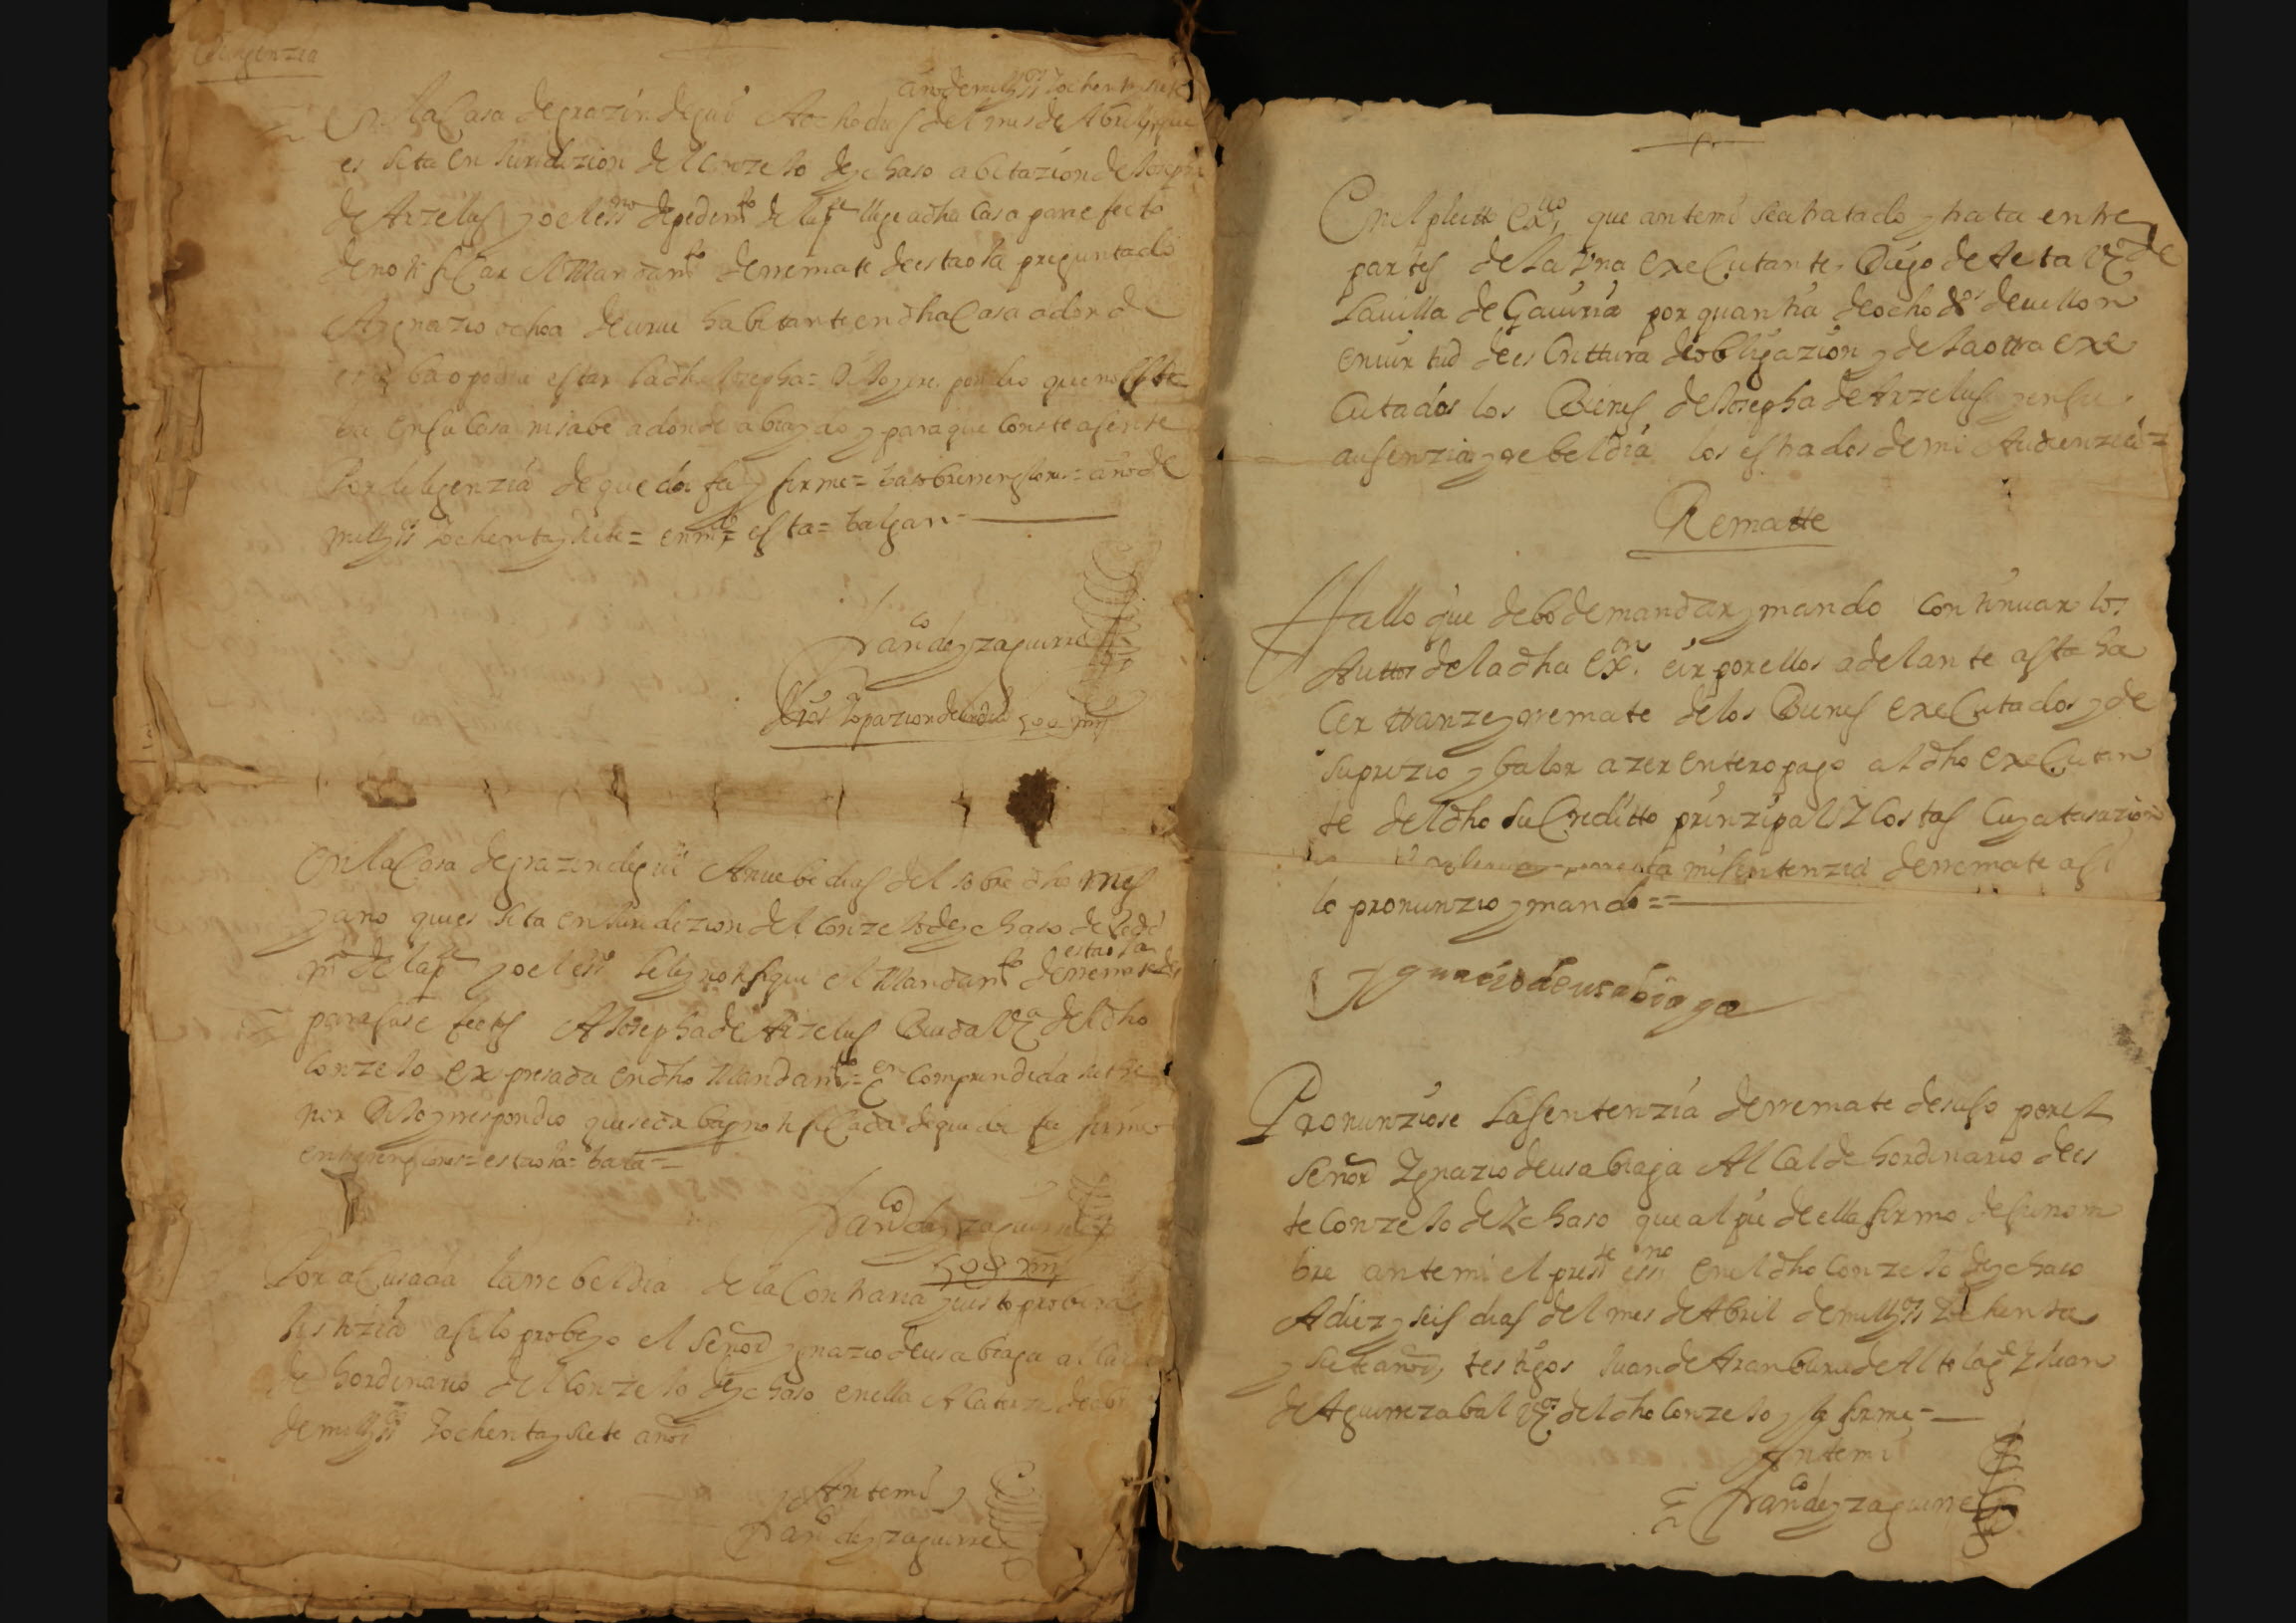 Diligenzia
año de mill y ss ochenta y siete
En la Casa de grazin degui A ocho dias del mes de Abril, que
es sita en Juridizion del Conzejo de ychaso abitazion de Josepha
de Arzelus yo el essno de pedimto de la pte llege a dha Casa para efecto
de notificar el Mandamto de rremate de esta oja preguntado
A Ygnazio ochoa de urui habitante en dha Casa adonde
estaba o podia estar la dha Josepha = Dijo que no esta
ba en su Casa ni sabe adonde abia ydo y para que Conste asente
Por diligenzia de que doi fee y firme = ba sobrerrenglones = año de
mill y ss ochenta y siete = enmdo = esta = balgan =
Franco de yzaguirre
Dros y ocupazion de un dia 500 mrs
En la Casa de grazin degui A nuebe dias del sobre dho mes
y año que es sita en Juridizion del Conzejo de ychaso de Pedi
mto de la pte yo el essno ley y notifique el Mandamto de rremate de
esta oja
para sus efectos A Josepha de Arzelus Biuda Vza del dho
Conzejo expresada en dho Mandamto = en Comprendida su the
nor Dijo y rrespondio que se daba por notificada de que doi fee y firme
entrerrenglones = esta oja = bala =
Franco de yzaguirre
500 mrs
Por acusada la rrebeldia de la Contraria y visto probera
Justizia asi lo probeyo el Señor ygnazio de usabiaga alcal
de hordinario del Conzejo de ychaso en ella A Catorze de abril
de mill y ss ochenta y siete años
Ante mi
Franco de yzaguirre
En el pleitto exuo que ante mi sea tratado y trata entre
partes de la una executante, Diego de Teta Vzo de
la villa de Gaviria por quantia de ocho ds de vellon
en uirtud de escrittura de obligazion y de la otra exe
Cutados los Bienes de Josepha de Arzelus y en su
ausenzia y rrebeldia los estrados de mi Audienzia =
Rematte
Hallo que debo de mandar y mando continuar los
Auttos de la dha exon e ir por ellos adelante asta ha
Cer ttranze y rremate de los Bienes executados y de
su prezio y balor azer entero pago al dho executan
te del dho su Creditto prinzipal y Costas Cuya tasazion
mi sentenzia de rremate asi
lo pronunzio y mando =
Ygnacio de usabiaga
Pronunziose La sentenzia de rremate de suso por el
Señor Ygnazio de usabiaga Alcalde hordinario de es
te Conzejo de Ychaso que al pie de ella firmo de su nom
bre ante mi el preste essno en el dho Conzejo de ychaso
A diez y seis dias del mes de Abril de mill y ss ochenta
y siete años, testigos Juan de Aranburu de Altolage y Juan
de Aguirrezabal Vzos del dho Conzejo y fe firme =
Ante mi
Franco de yzaguirre